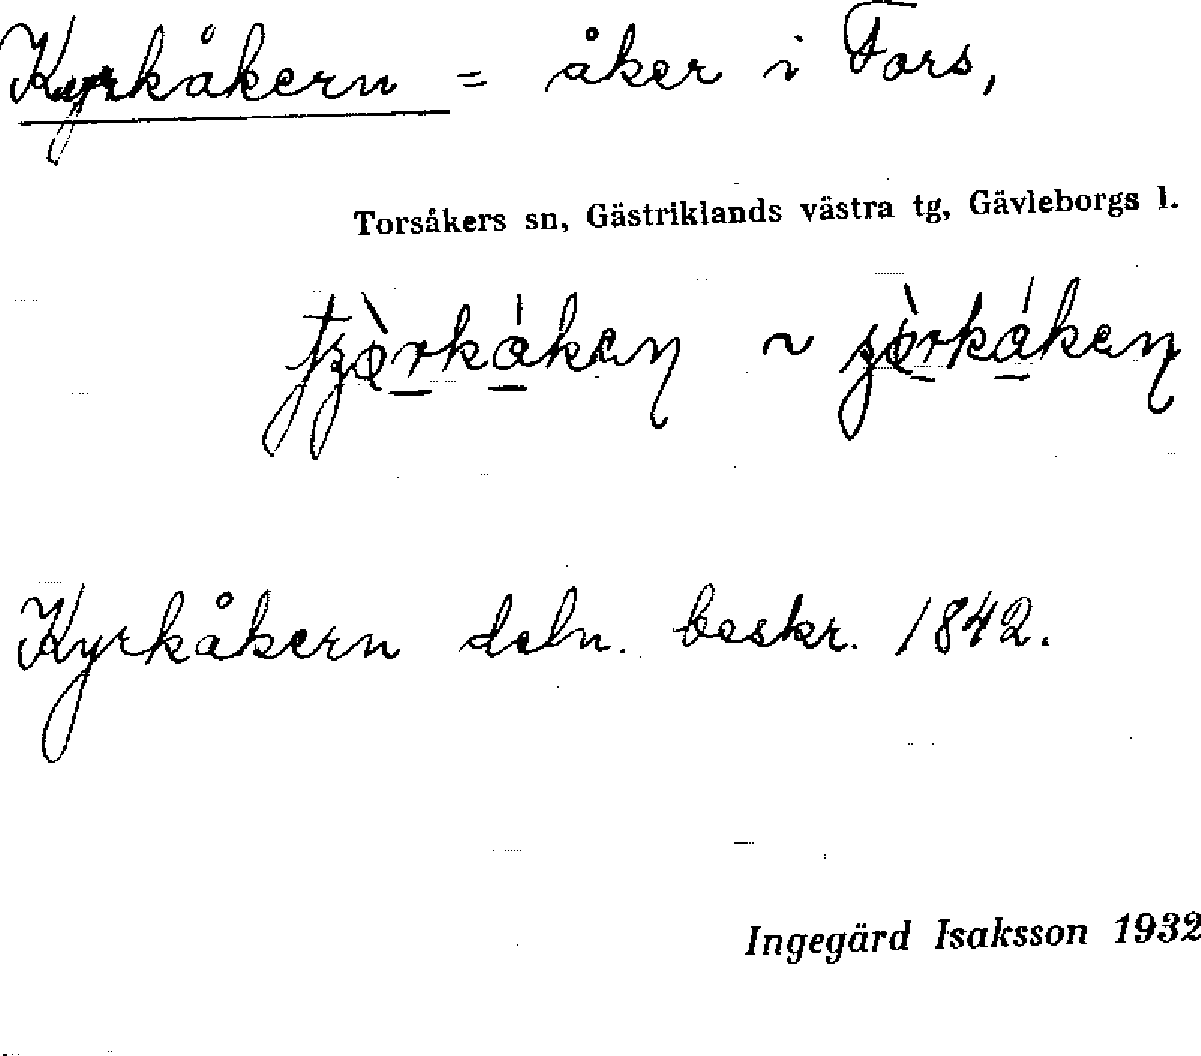 Kyrkåkern = åker i Fors,
Torsåkers sn, Gästriklands västra tg, Gävleborgs l.
Kyrkåkern deln. beskr. 1842.
Ingegärd Isaksson 1932